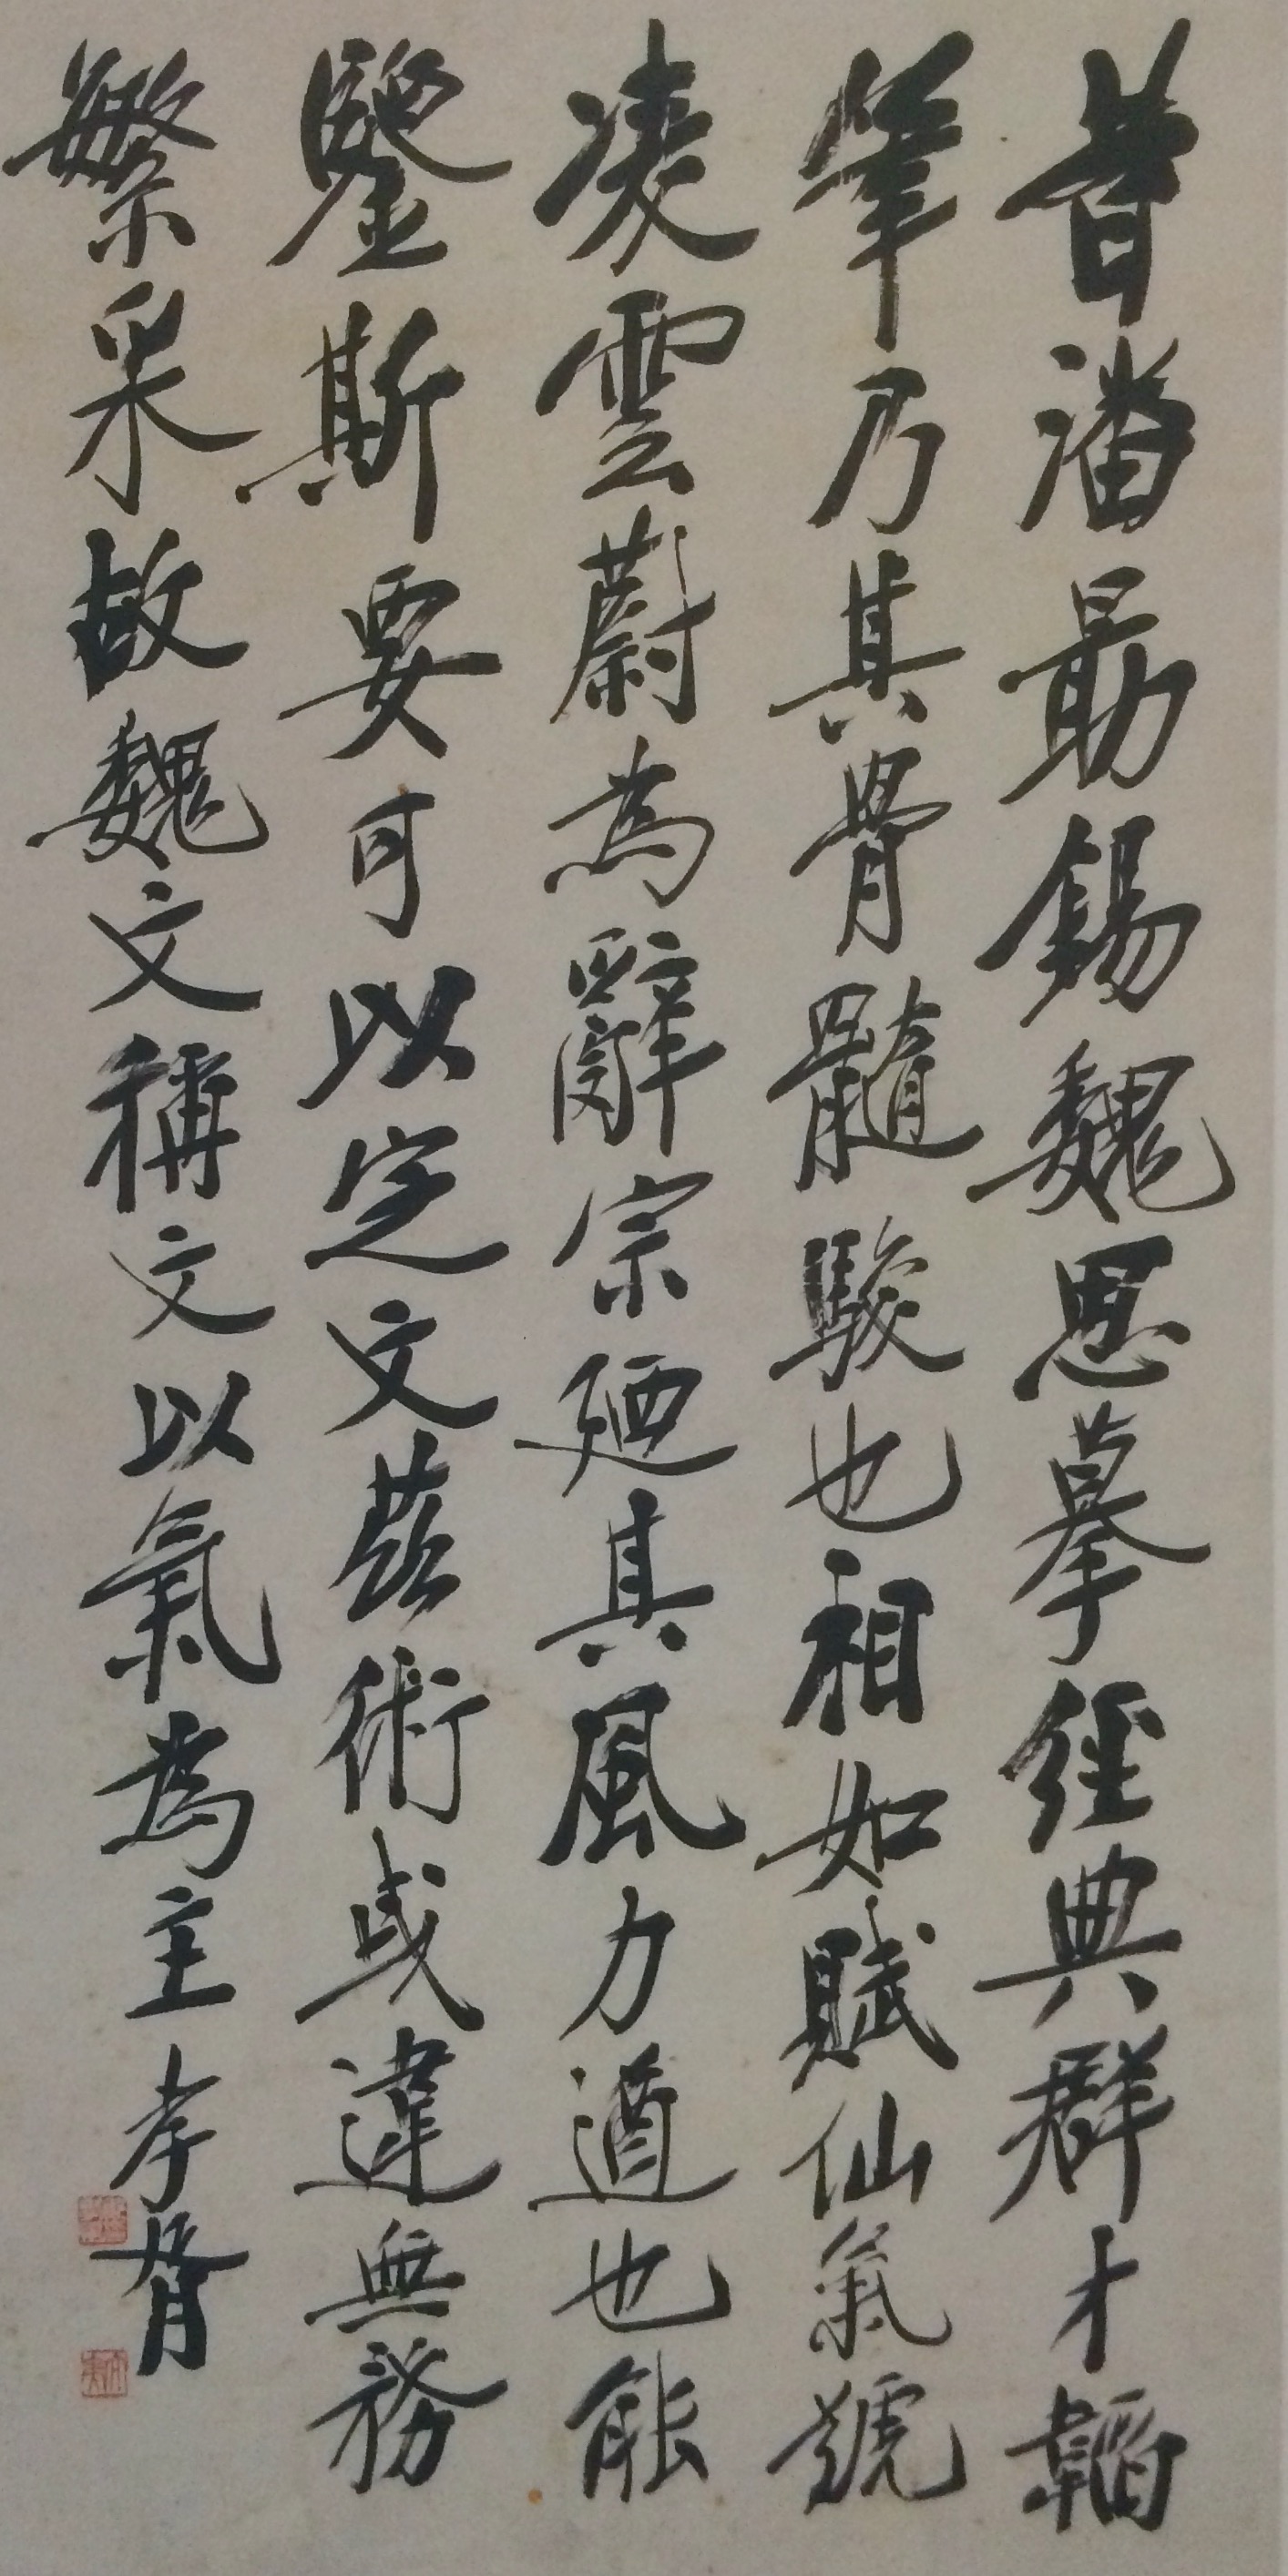 昔潘勗錫魏思摹經典群才韜
筆乃其骨髓駿也相如賦仙氣號
凌雲蔚為辭宗廼其風力遒也能
鑒斯要可以定文茲術或違無務
繁采故魏文稱文以氣為主孝胥